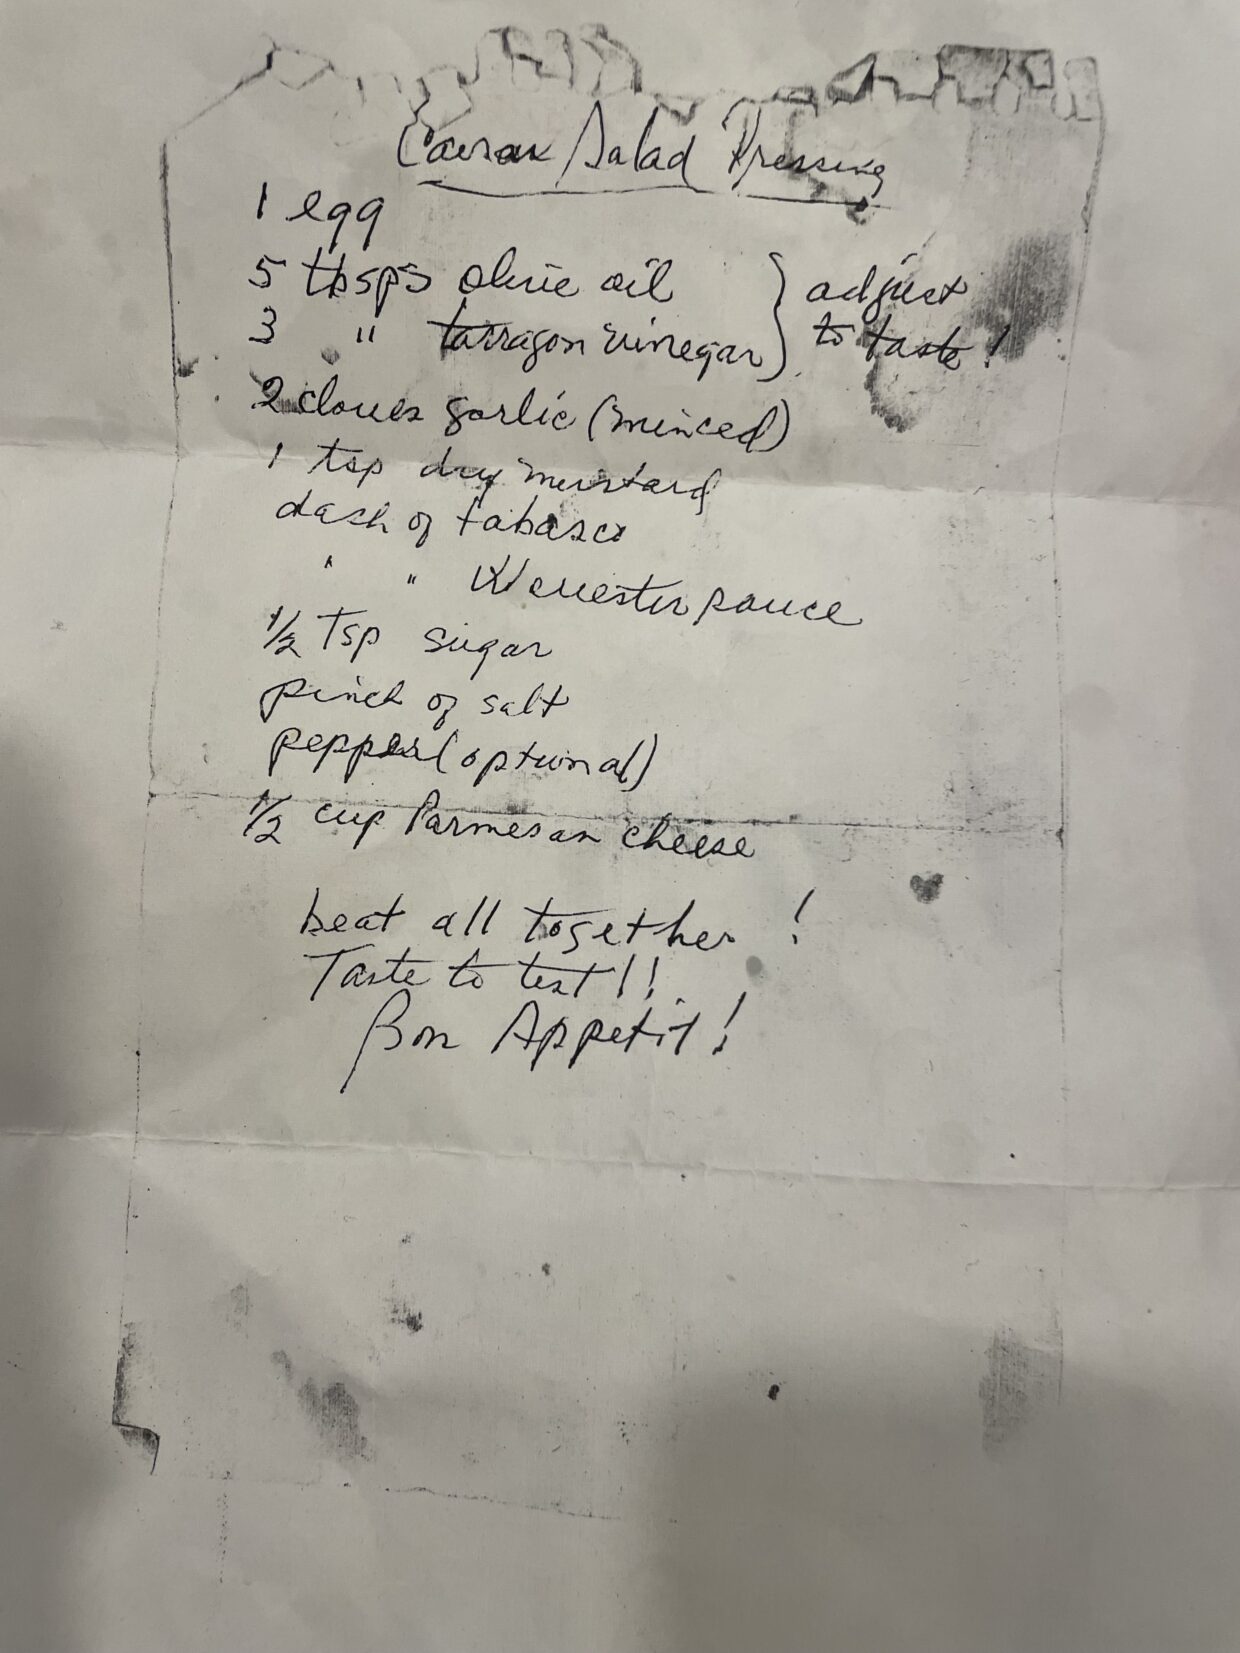 Caesar Salad Dressing
1 egg
5 tbsps olive oil } adjust
3 " tarragon vinegar } to taste!
2 cloves garlic (minced)
1 tsp dry mustard
dash of tabasco
" " Worcester sauce
1/2 Tsp sugar
pinch of salt
pepper (optional)
1/2 cup Parmesan cheese
beat all together!
Taste to test!!
Bon Appetit!